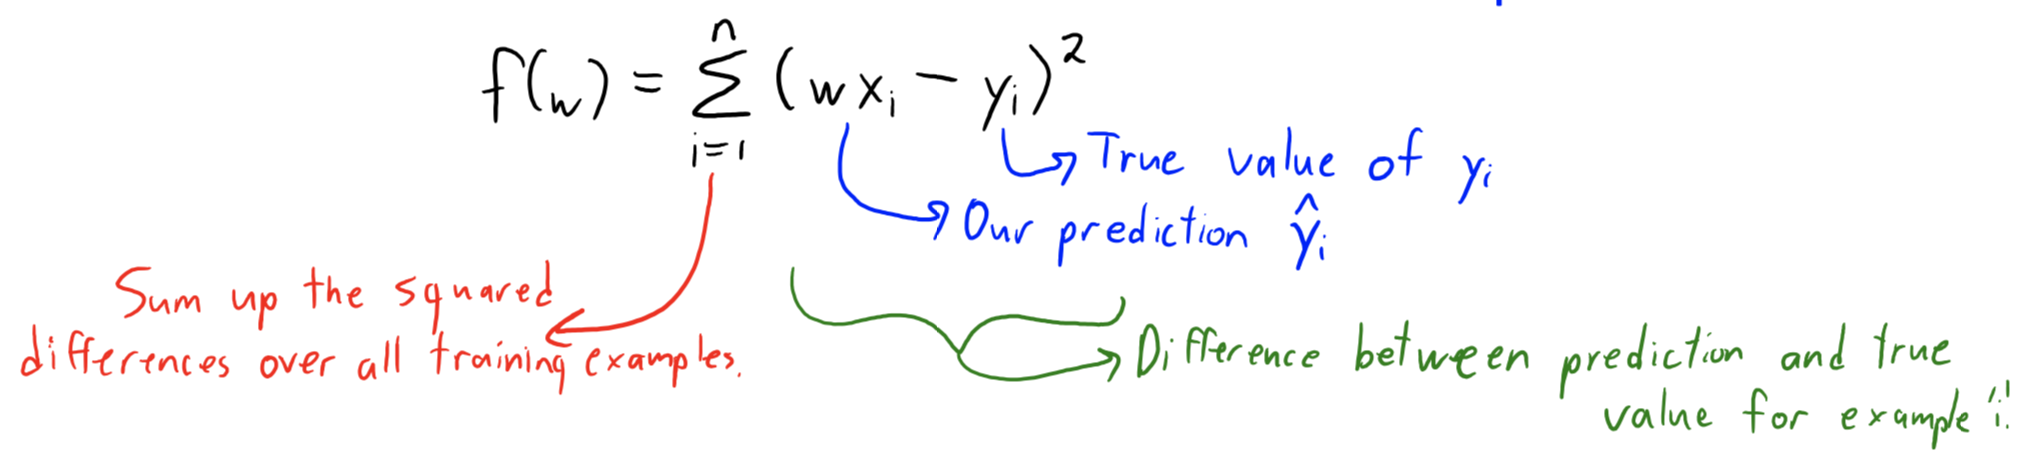 f(w) = Σ_{i=1}^{n} (w x_i - y_i)^2
True value of y_i
Our prediction ŷ_i
Sum up the squared
differences over all training examples.
Difference between prediction and true
value for example 'i'.